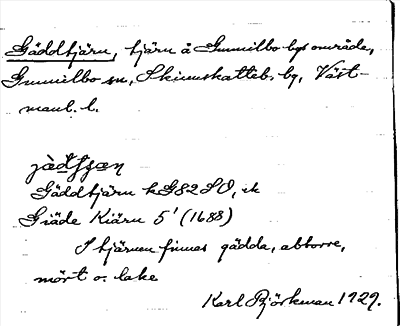 Gäddtjärn, tjärn å Gunnilbo bys område,
Gunnilbo sn, Skinnskatteb. bg, Väst-
manl. l.
Gäddtjärn k G82 SO, ek
Giäde Kiärn 5' (1688)
I tjärnen finnes gädda, abborre,
mört o. lake
Karl Björkman 1929.